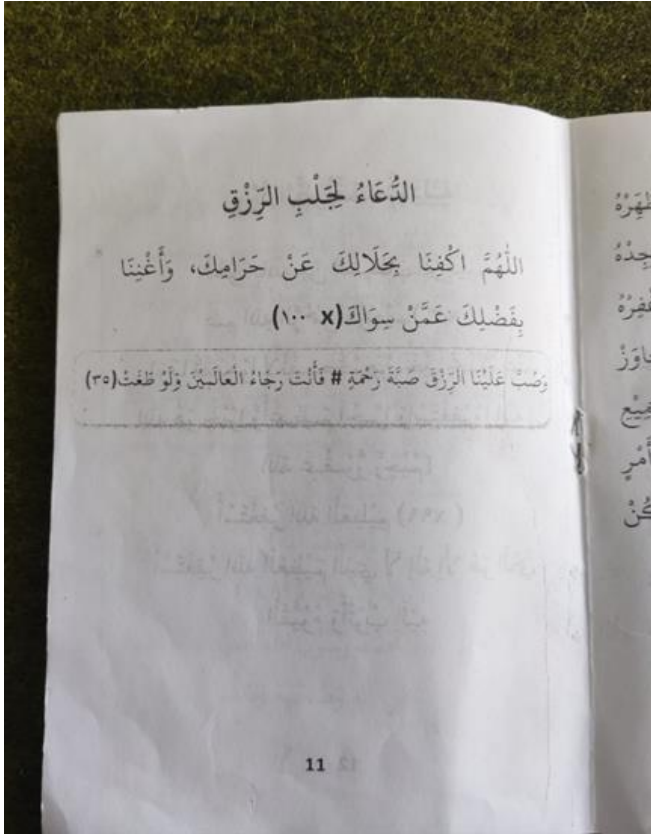 الدُّعَاءُ لِجَلْبِ الرِّزْقِ
اللّٰهُمَّ اكْفِنَا بِحَلَالِكَ عَنْ حَرَامِكَ، وَأَغْنِنَا
بِفَضْلِكَ عَمَّنْ سِوَاكَ(x ١٠٠)
وَصُبَّ عَلَيْنَا الرِّزْقَ صَبَّةَ رَحْمَةٍ # فَأَنْتَ رَجَاءُ الْعَالَمِيْنَ وَلَوْ طَغَتْ(٣٥)
11